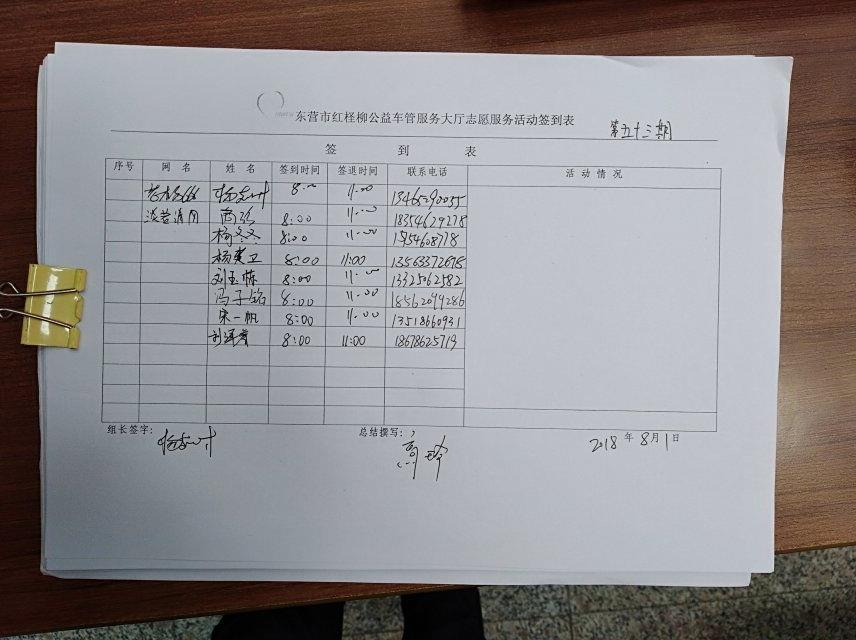 东营市红柽柳公益车管服务大厅志愿服务活动签到表
第五十三期
签 到 表
序号 网 名 姓 名 签到时间 签退时间 联系电话 活 动 情 况
8:00 11:00
8:00 11:00 18354629278
杨冬冬 8:00 11:00
杨建卫 8:00 11:00 13563372698
刘玉栋 8:00 11:00 13325062582
冯子铭 8:00 11:00 18562099286
宋一帆 8:00 11:00 13518660931
8:00 11:00 18678625719
组长签字: 总结撰写: 2018 年 8 月 1 日